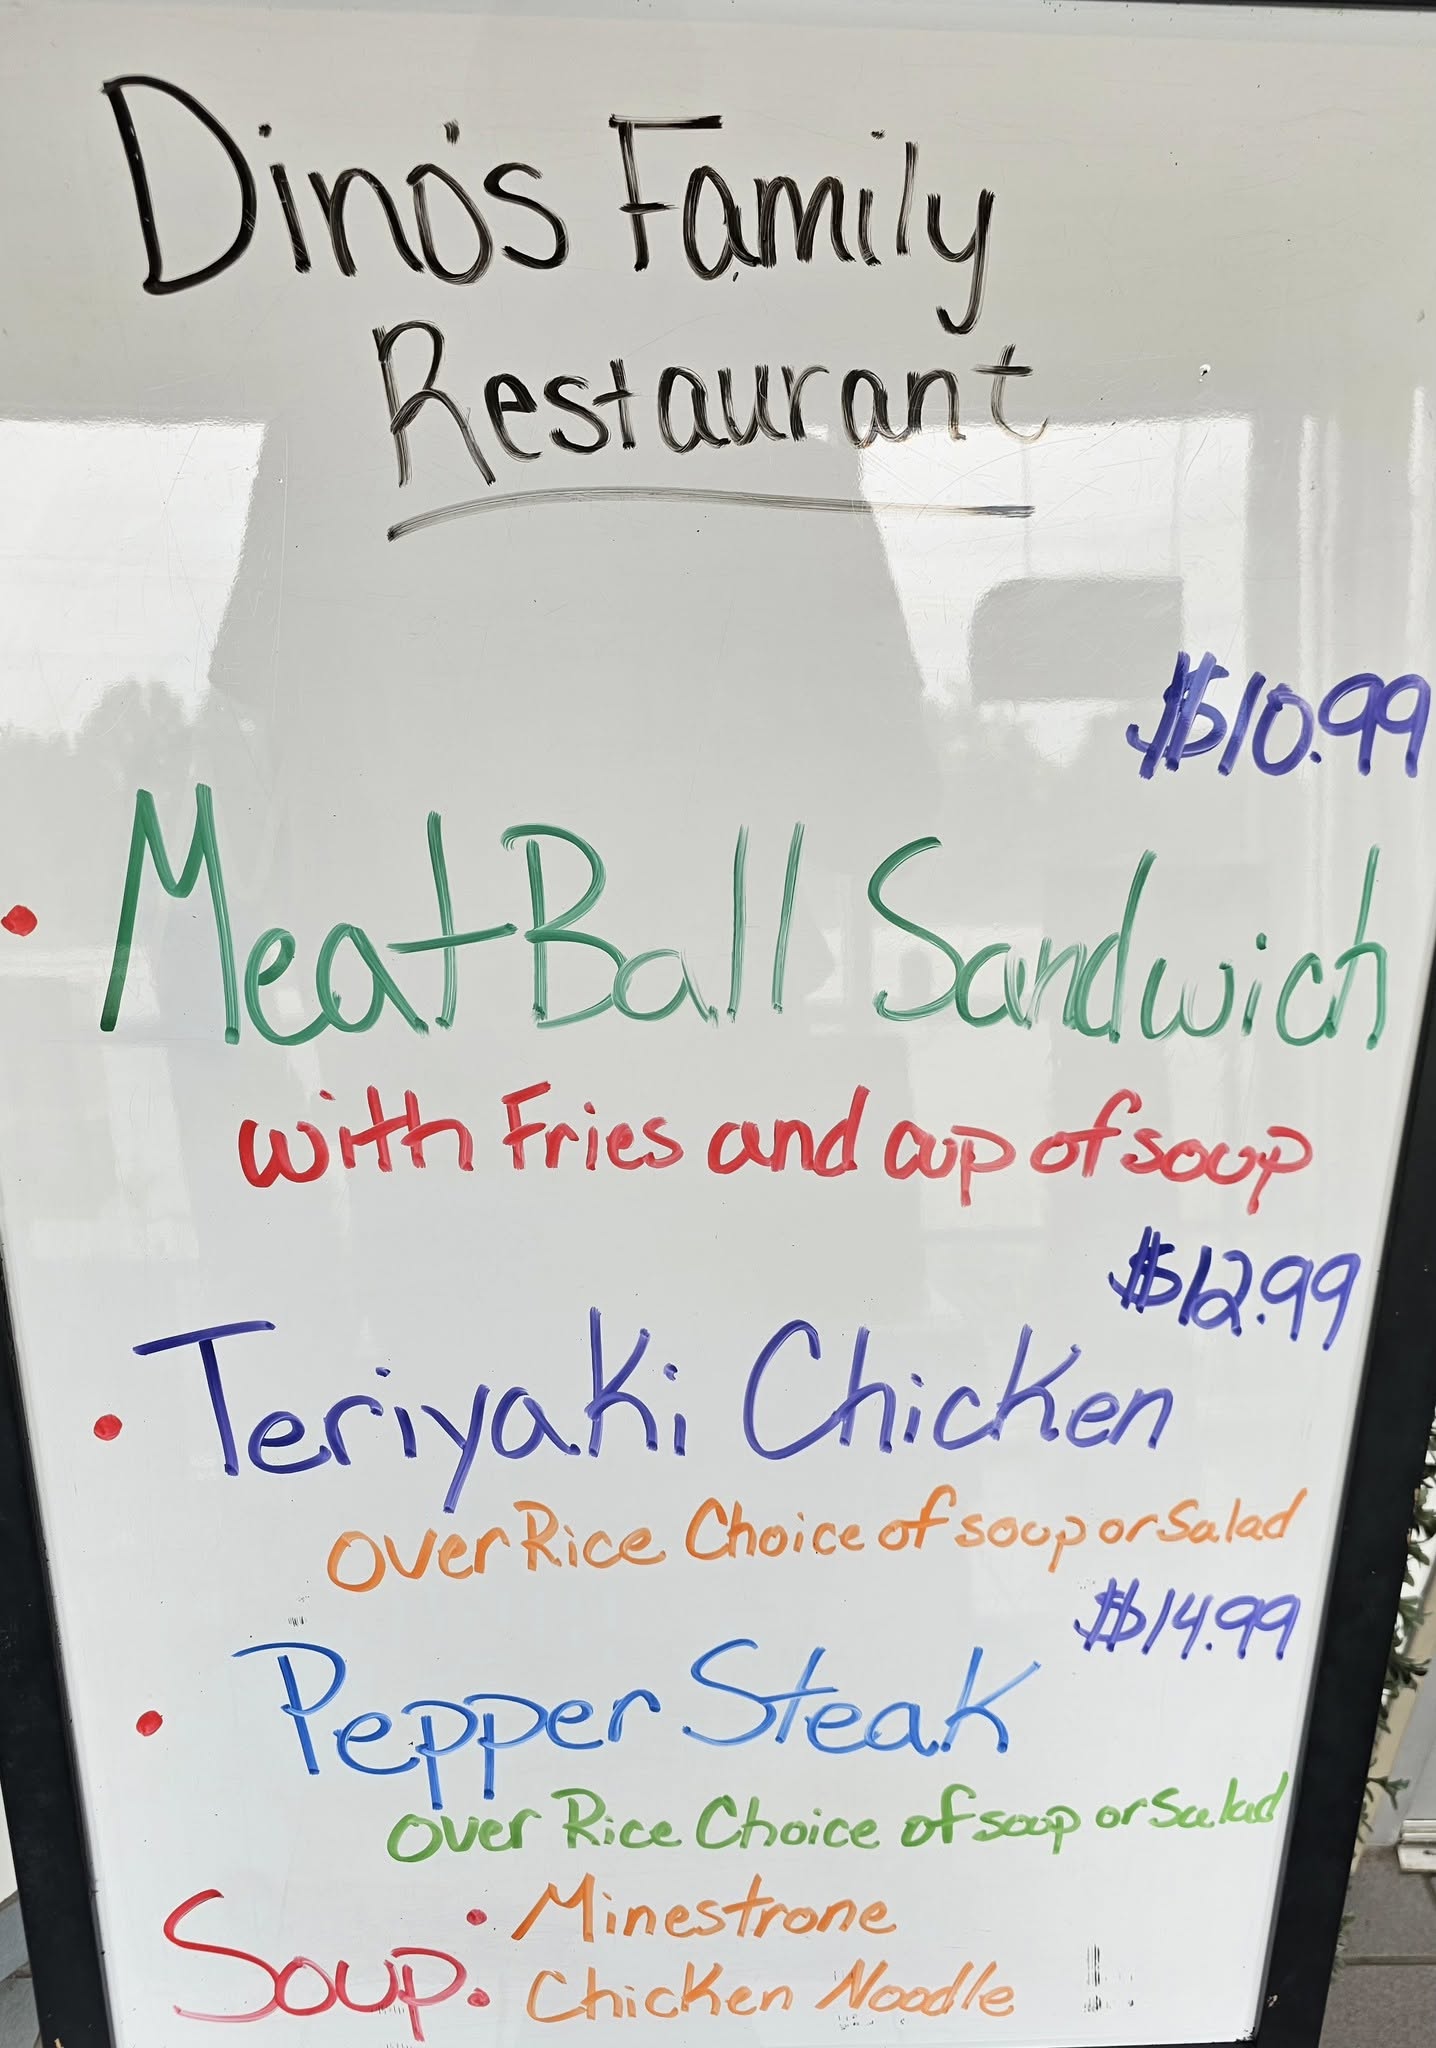 Dino's Family
Restaurant
$10.99
• MeatBall Sandwich
with Fries and cup of soup
$12.99
• Teriyaki Chicken
over Rice Choice of soup or Salad
$14.99
• Pepper Steak
over Rice Choice of soup or Salad
Soup • Minestrone
• Chicken Noodle